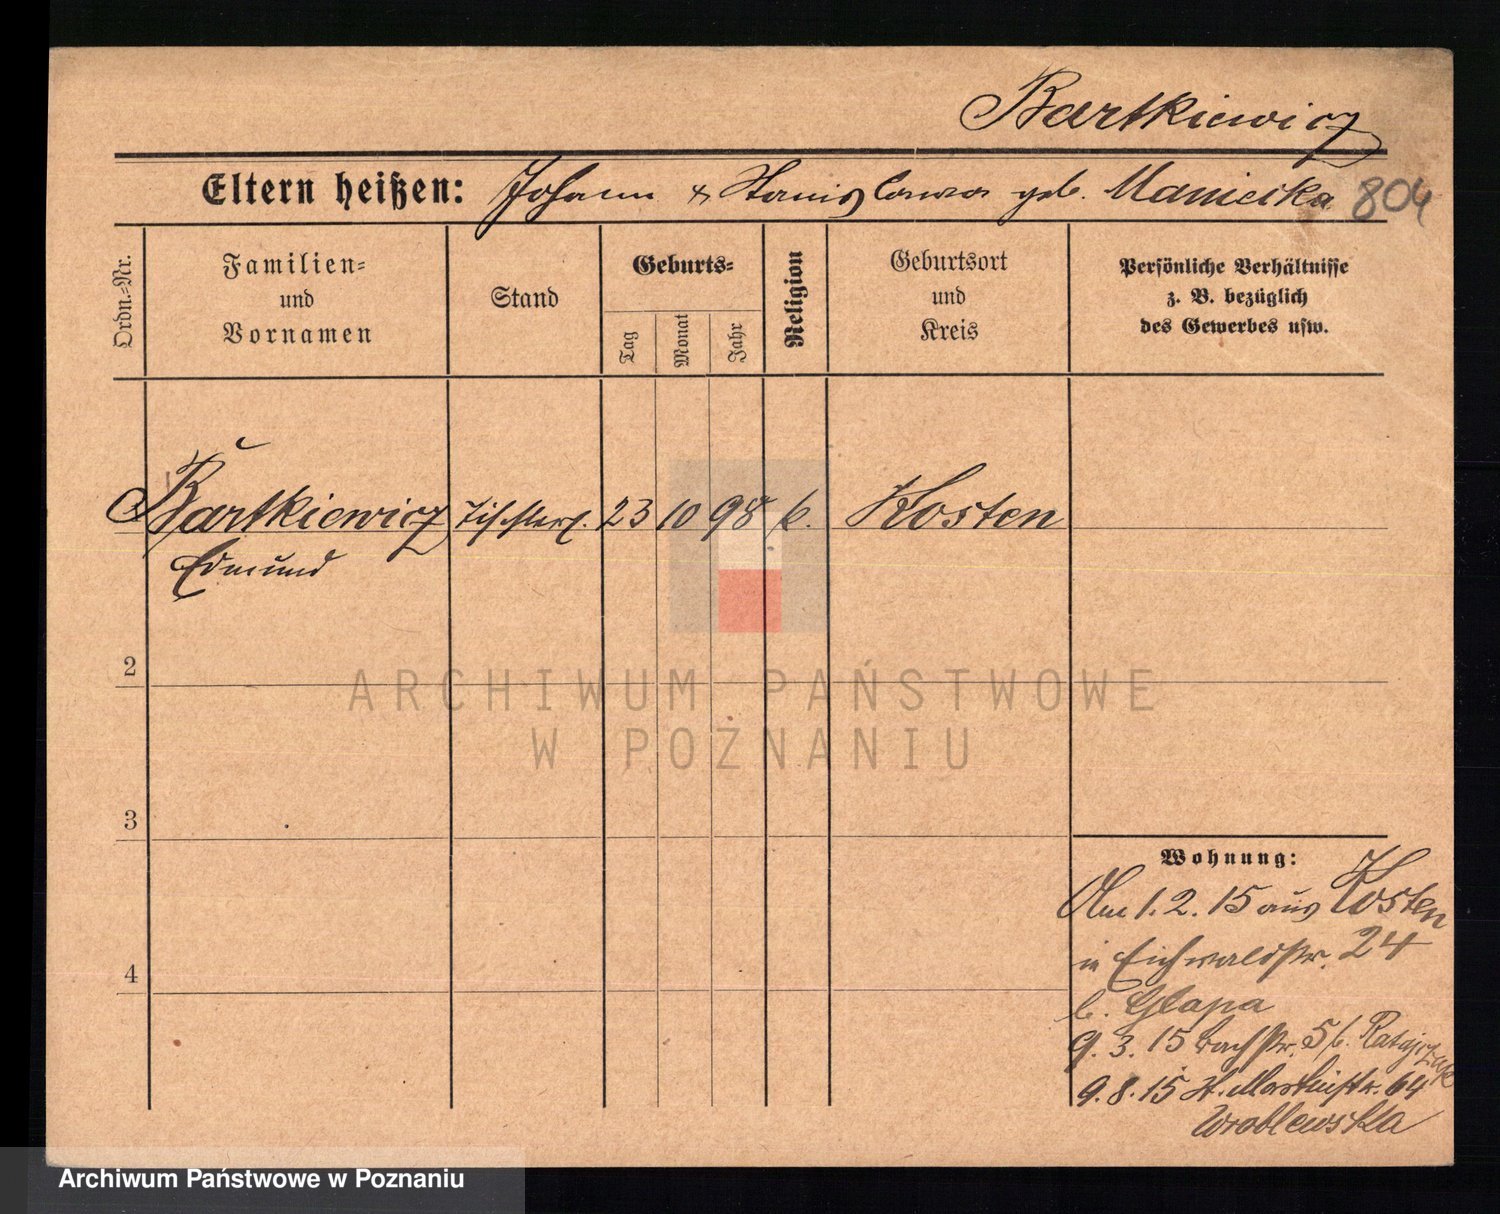 Bartkiewicz
Eltern heißen: Johann & Stanislawa geb. Maniecka 804
Ordn.-Nr.
Familien- und Vornamen
Stand
Geburts-
Tag
Monat
Jahr
Religion
Geburtsort und Kreis
Persönliche Verhältnisse
z. B. bezüglich
des Gewerbes usw.
Bartkiewicz Tischlerl. 23 10 98 k. Kosten
Edmund
2
3
4
Wohnung:
Am 1. 2. 15 aus Kosten
in Eichwaldstr. 24
b. Glapa
9. 3. 15 Bachstr. 5 b. Ratajczak
9. 8. 15 St. Martinstr. 64
Wroblewska
ARCHIWUM PAŃSTWOWE
W POZNANIU
Archiwum Państwowe w Poznaniu